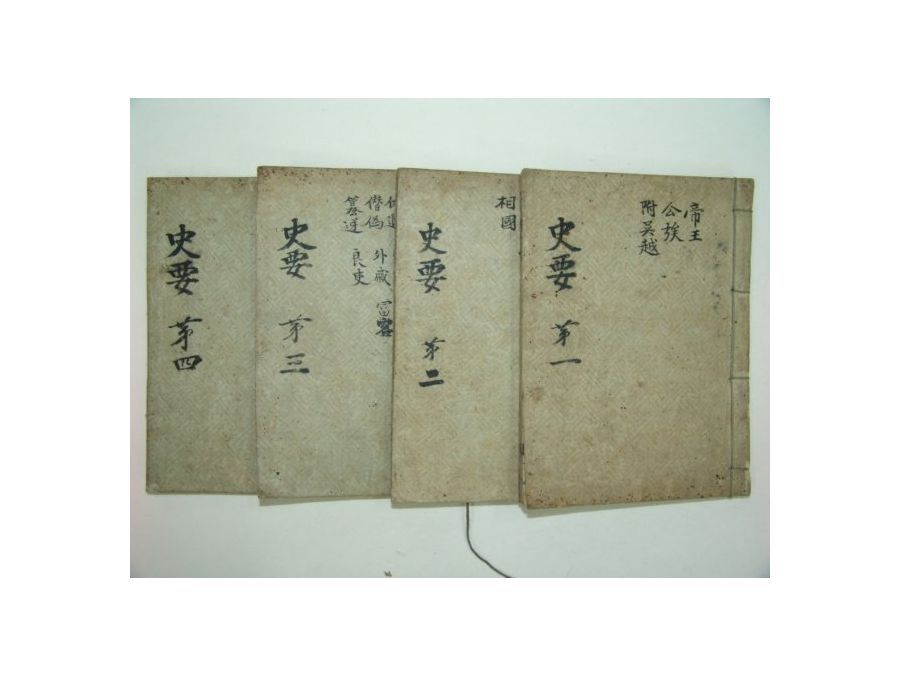 帝王
公族
附吳越
史要 第一
相國
史要 第二
僭偽 外戚
簒逆 良吏
史要 第三
史要 第四